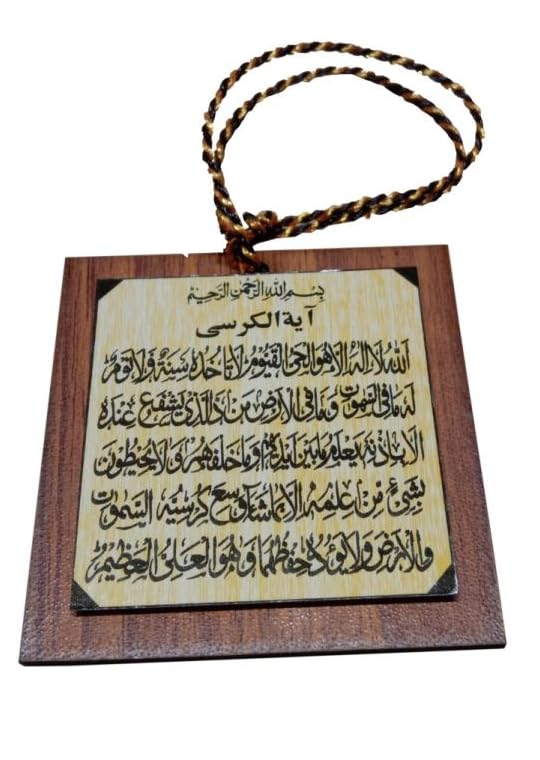 بسم الله الرحمن الرحيم
آية الكرسى
الله لا اله الا هو الحى القيوم لا تاخذه سنة ولا نوم
له ما فى السموت وما فى الارض من ذا الذى يشفع عنده
الا باذنه يعلم ما بين ايديهم وما خلفهم ولا يحيطون
بشىء من علمه الا بما شاء وسع كرسيه السموت
والارض ولا يوده حفظهما وهو العلى العظيم